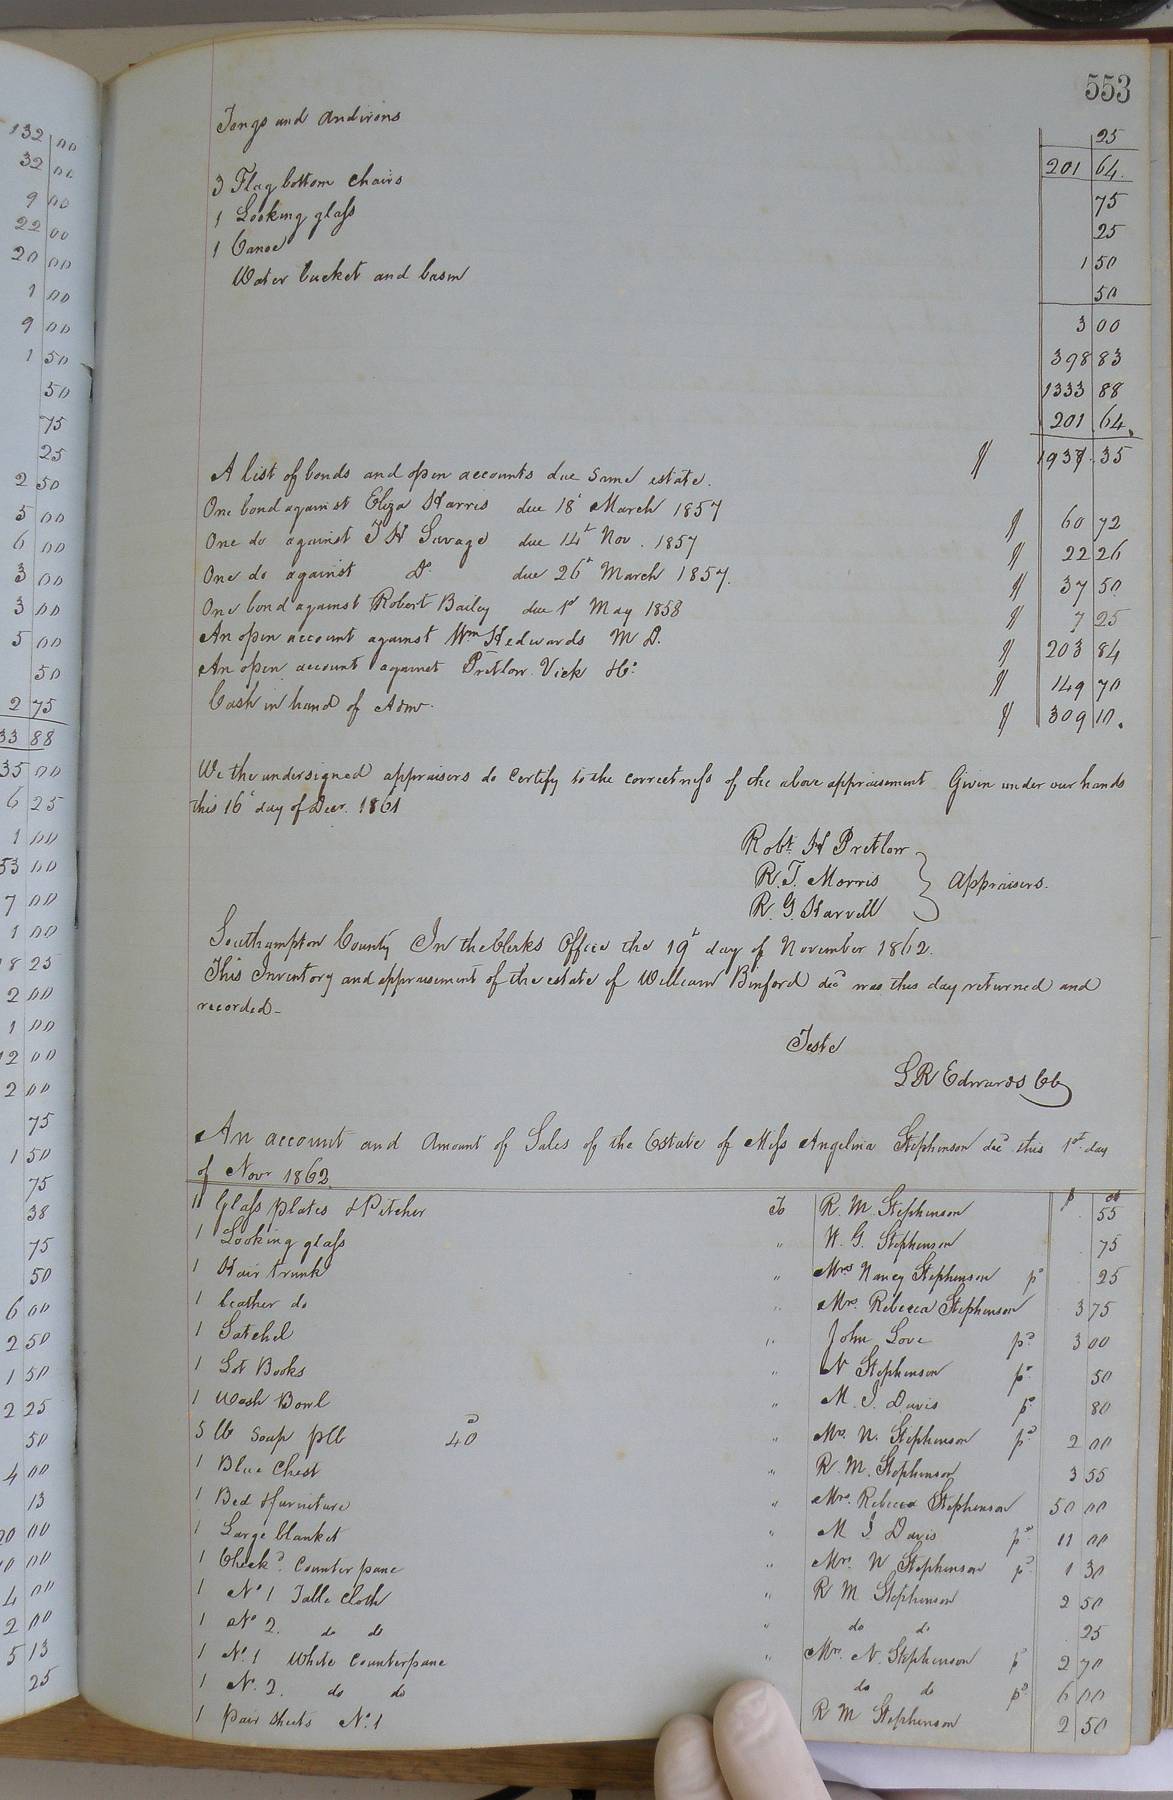 553
Tongs and andirons 25
201 64
3 Flag bottom chairs 75
1 Looking glass 25
1 Canoe 1 50
Water bucket and basin 50
3 00
398 83
1333 88
201 64
1937 35
A list of bonds and open accounts due same estate.
One bond against Eliza Harris due 18t March 1857 60 72
One do against T H Savage due 14t Nov. 1857 22 26
One do against Do due 26t March 1857. 37 50
One bond against Robert Bailey due 1st May 1858 7 25
An open account against Wm H Edwards M D. 203 84
An open account against Pretlow Vick &Co 149 70
Cash in hand of Admr. 309 10.
We the undersigned appraisers do certify to the correctness of the above appraisement Given under our hands
this 16t day of Decr. 1861
Robt. H Pretlow
R. T. Morris } Appraisers.
R. G. Harvell
Southampton County In the Clerks Office the 19t day of November 1862.
This Inventory and appraisement of the estate of William Binford decd was this day returned and
recorded-
Teste
L R Edwards Cl
An account and Amount of Sales of the Estate of Miss Angelina Stephenson decd this 1st day
of Novr 1862
11 Glass plates & Pitcher To R. M. Stephenson 55
1 Looking glass " W. G. Stephenson 75
1 Hair trunk " Mrs Nancy Stephenson pd 25
1 leather do " Mrs. Rebecca Stephenson 3 75
1 Satchel " John Love pd 3 00
1 Lot Books " N Stephenson pd 50
1 Wash Bowl " M. J. Davis pd 80
5 lb Soap plb 40 " Mrs. N. Stephenson pd 2 00
1 Blue Chest " R. M. Stephenson 3 55
1 Bed & furniture " Mrs. Rebecca Stephenson 50 00
1 Large blanket " M J. Davis pd 11 00
1 Checkd Counterpane " Mrs. N Stephenson pd 1 30
1 No 1 Table Cloth " R M Stephenson 2 50
1 No 2. do do " do do 25
1 No. 1 White Counterpane " Mrs. N. Stephenson pd 2 70
1 No. 2. do do do do pd 6 00
1 pair sheets No. 1 R M Stephenson 2 50
132 00
32 00
9 00
22 00
20 00
1 00
9 00
1 50
50
75
25
2 50
5 00
6 00
3 00
3 00
5 00
50
2 75
33 88
35 00
6 25
1 00
53 00
7 00
1 00
18 25
2 00
1 00
12 00
2 00
75
1 50
75
38
75
50
6 00
2 50
1 50
2 25
50
4 00
13
00
00
4 00
2 00
5 13
25